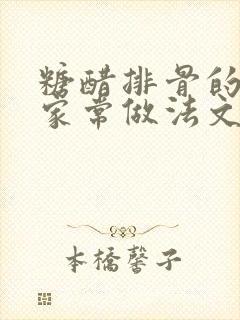 糖醋排骨的
家常做法文
本橋馨子